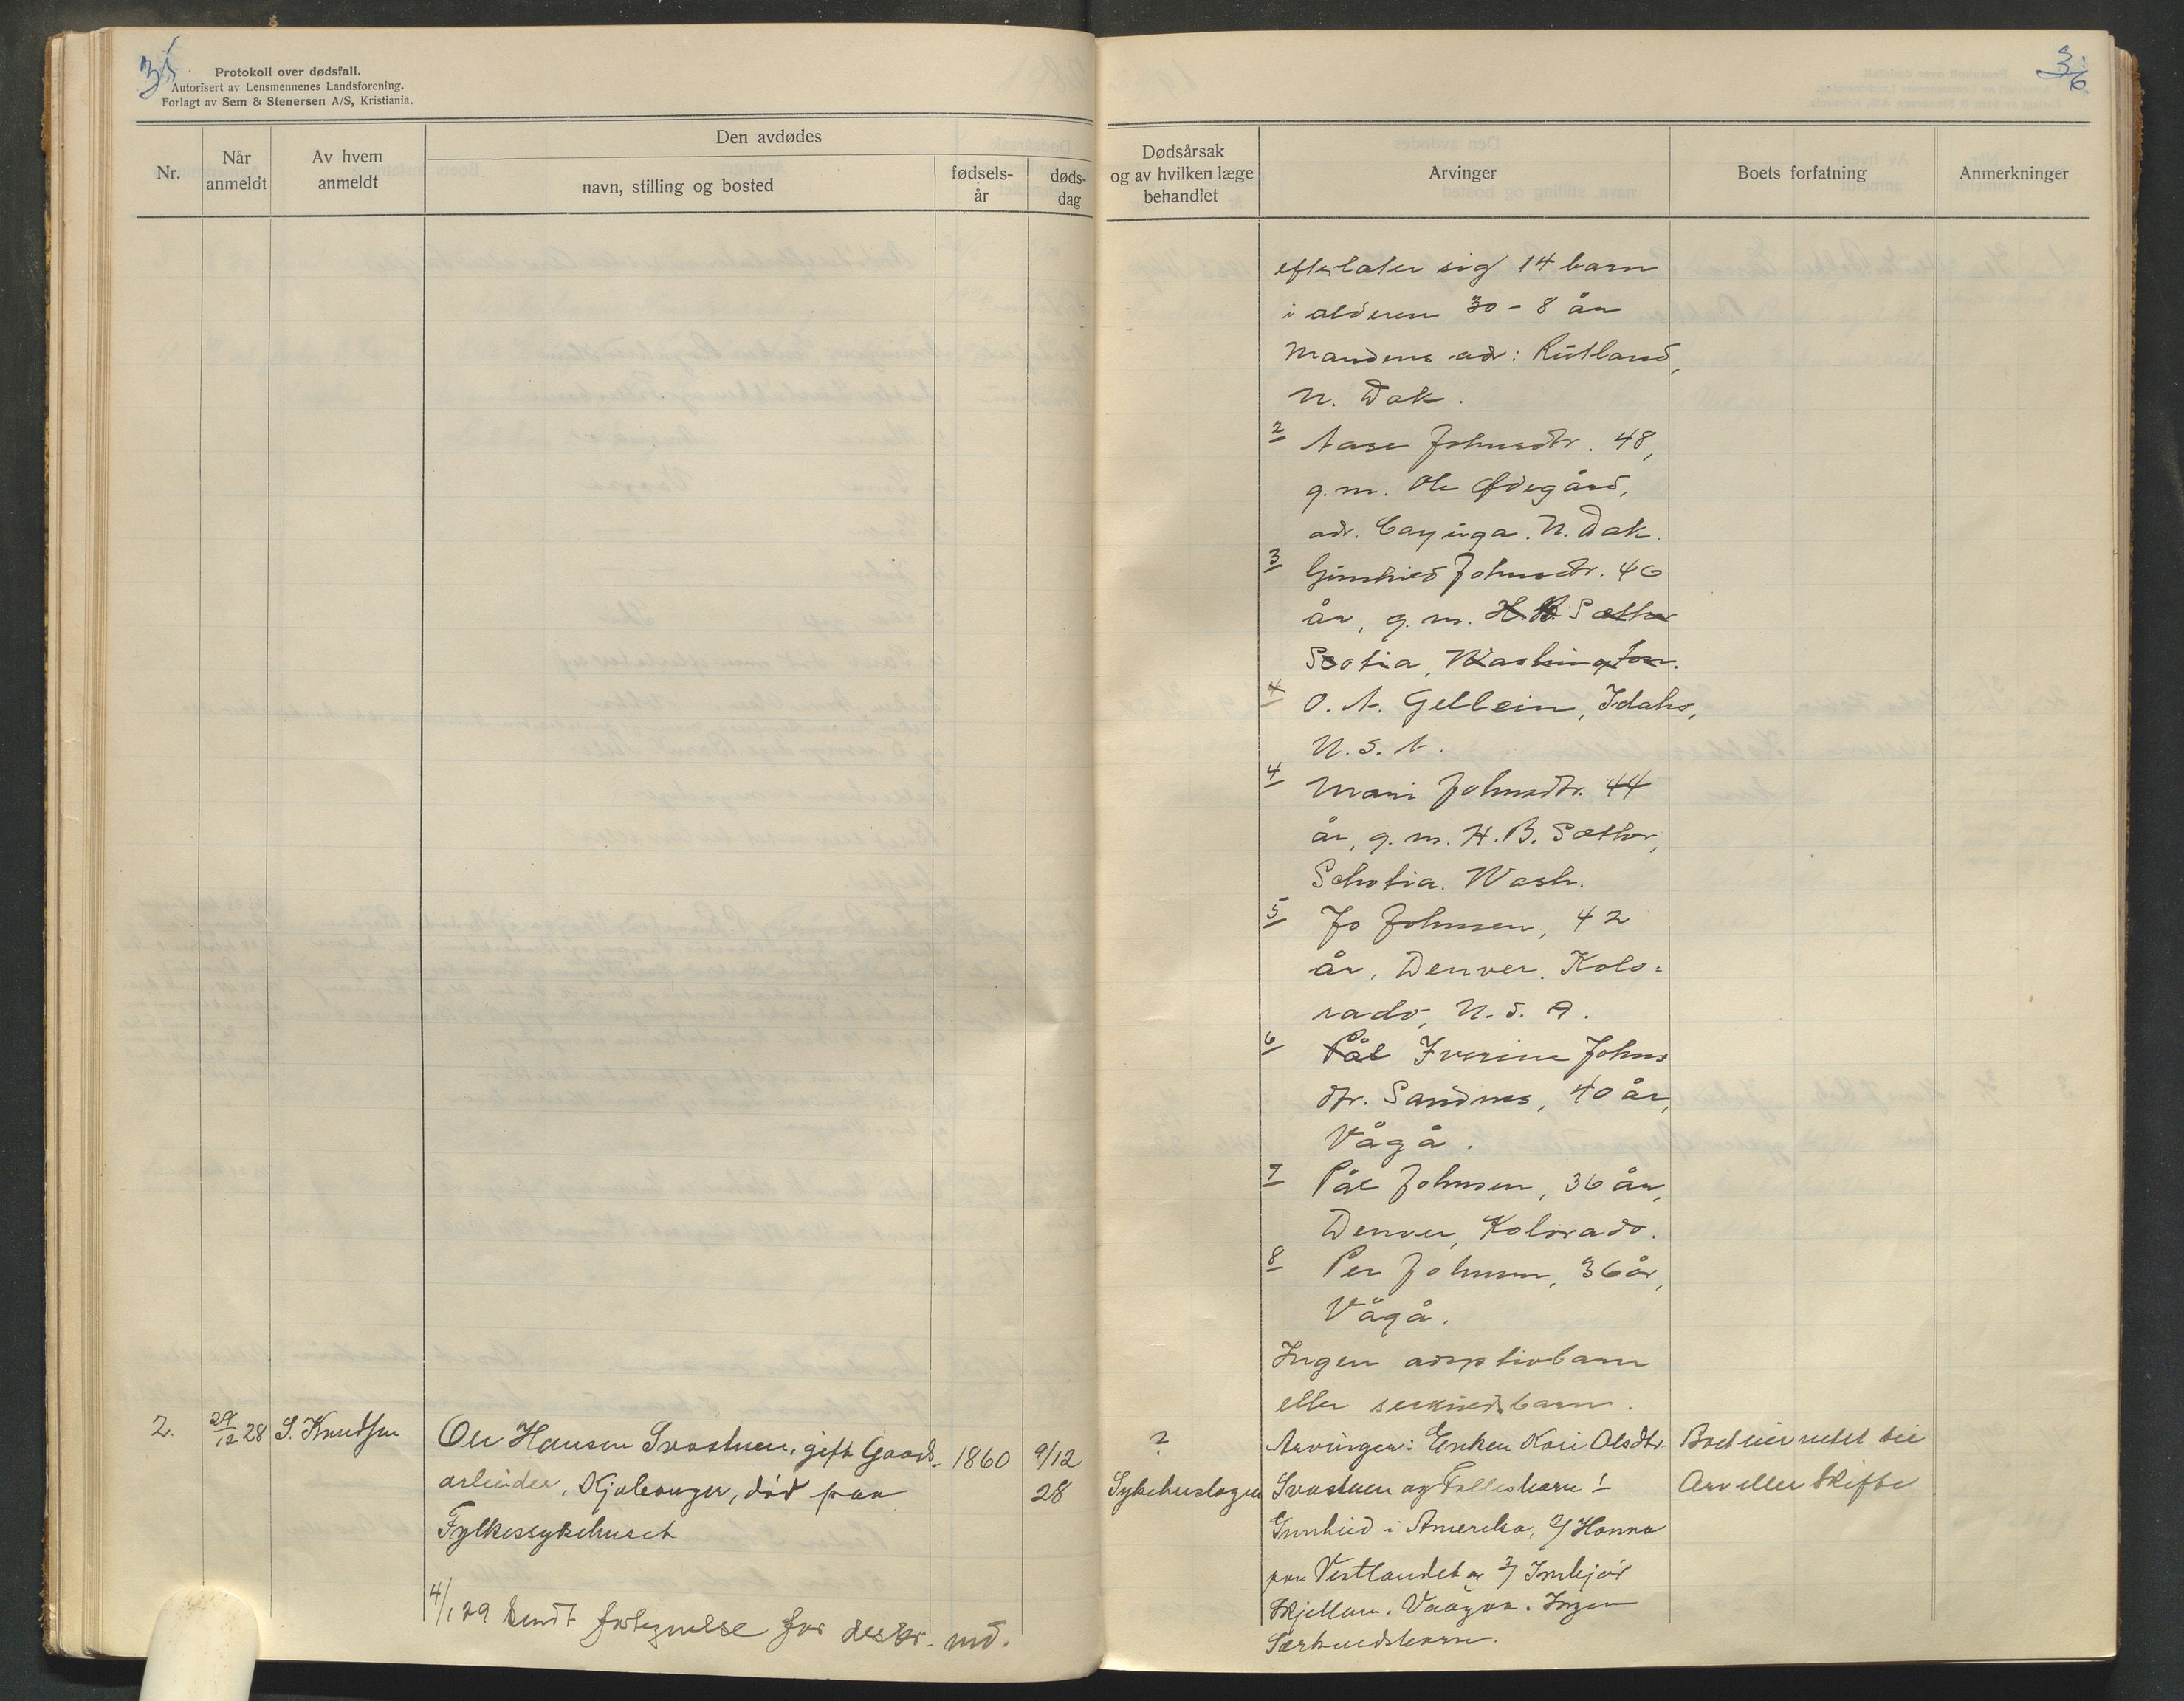 35
Protokoll over dødsfall.
Autorisert av Lensmennenes Landsforening.
Forlagt av Sem & Stenersen A/S, Kristiania.
Nr.
Når anmeldt
Av hvem anmeldt
Den avdødes
navn, stilling og bosted
fødsels-år
døds-dag
2.
29/12 28
S. Knudsen
Ole Hansen Svastuen, gift Gaards-
arbeider, Kjoleonger, død paa
Fylkessykehuset
1860
9/12
28
4/1 29 sendt fortegnelse for desbr. md.
36
Dødsårsak
og av hvilken læge
behandlet
Arvinger
Boets forfatning
Anmerkninger
efterlater sig 14 barn
i alderen 30 - 8 år
Mandens adr: Rutland,
N. Dak.
2 Aase Johnsdtr. 48,
g.m. Ole Ødegård,
adr. Cayuga. N. Dak.
3 Gunhild Johnsdtr. 46
år, g. m. H. B. Sæther
Scotia, Washington.
4 O. A. Gellein, Idaho,
U. S. A.
4 Mari Johnsdtr. 44
år, g. m. H. B. Sæther,
Schotia. Wash.
5 Jo Johnsen, 42
år, Denver. Kolo-
rado, U. S. A.
6 Pål Iverine Johns
dtr. Sandnes, 40 år,
Vågå.
7 Pål Johnsen, 36 år,
Denver, Kolorado.
8 Per Johnsen, 36 år,
Vågå.
Ingen adoptivbarn
eller serkuldsbarn.
?
Sykehuslægen
Arvinger: Enken Kari Olsdtr.
Svastuen og Fellesbarn 1
Gunhild i Amerika, 2/ Hanna
paa Vestlandet og 3/ Imbjør
Skjellum. Vaagaa. Ingen
Særkuldsbarn.
Boet eier intet til
Arv eller Skifte